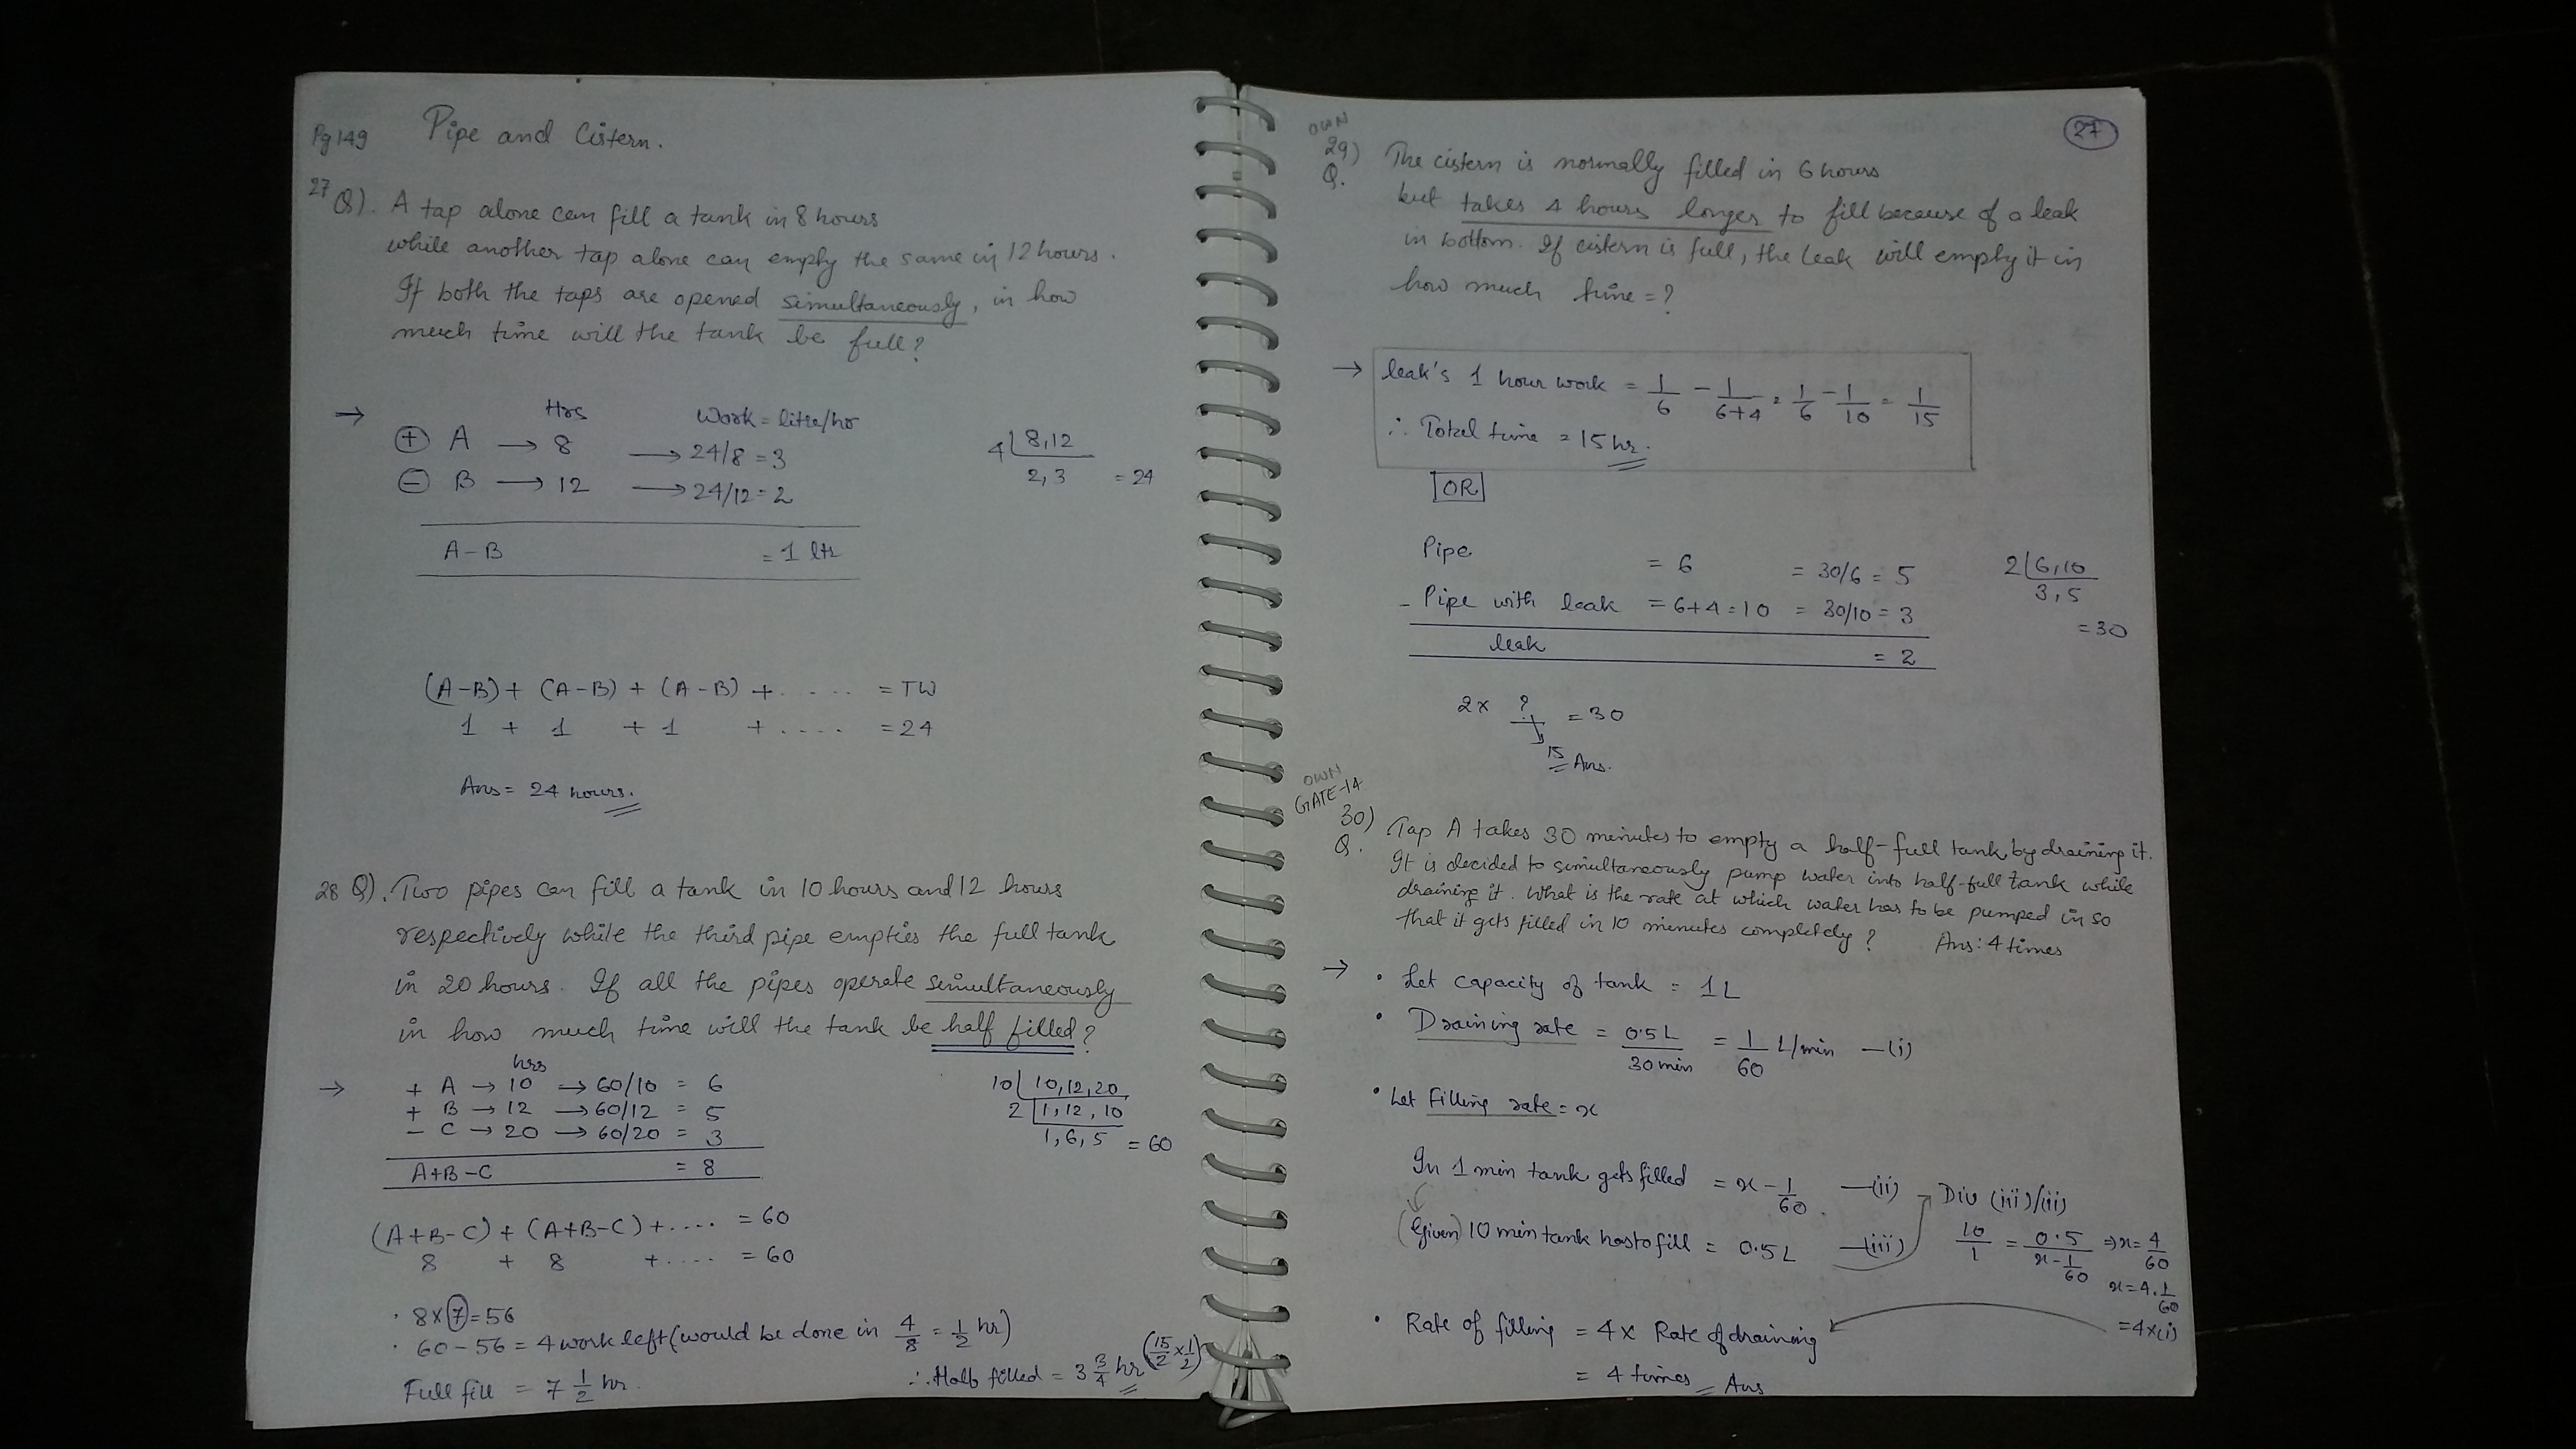 Pg 149 Pipe and Cistern.
27 Q). A tap alone can fill a tank in 8 hours
while another tap alone can empty the same in 12 hours.
If both the taps are opened simultaneously, in how
much time will the tank be full?
Hrs Work = litre/hr
→ ⊕ A → 8 → 24/8 = 3
⊖ B → 12 → 24/12 = 2
4 | 8, 12
2, 3 = 24
A-B = 1 ltr
(A-B) + (A-B) + (A-B) + ..... = TW
1 + 1 + 1 + .... = 24
Ans = 24 hours.
28 Q). Two pipes can fill a tank in 10 hours and 12 hours
respectively while the third pipe empties the full tank
in 20 hours. If all the pipes operate simultaneously
in how much time will the tank be half filled?
hrs
→ + A → 10 → 60/10 = 6
+ B → 12 → 60/12 = 5
- C → 20 → 60/20 = 3
A+B-C = 8
10 | 10, 12, 20
2 | 1, 12, 10
1, 6, 5 = 60
(A+B-C) + (A+B-C) + .... = 60
8 + 8 + .... = 60
· 8×7 = 56
· 60-56 = 4 work left (would be done in 4/8 = 1/2 hr)
Full fill = 7 1/2 hr.
∴ Half filled = 3 3/4 hr (15/2 × 1/2)
27
OWN
29) Q. The cistern is normally filled in 6 hours
but takes 4 hours longer to fill because of a leak
in bottom. If cistern is full, the leak will empty it in
how much time = ?
→ leak's 1 hour work = 1/6 - 1/6+4 = 1/6 - 1/10 = 1/15
∴ Total time = 15 hr.
OR
Pipe = 6 = 30/6 = 5
- Pipe with leak = 6+4 = 10 = 30/10 = 3
leak = 2
2 | 6, 10
3, 5
= 30
2 × ? = 30
15 Ans.
OWN
GATE-14
30) Q. Tap A takes 30 minutes to empty a half-full tank by draining it.
It is decided to simultaneously pump water into half-full tank while
draining it. What is the rate at which water has to be pumped in so
that it gets filled in 10 minutes completely? Ans: 4 times
→ · Let capacity of tank = 1L
· Draining rate = 0.5L/30 min = 1/60 L/min —(i)
· Let filling rate = x
In 1 min tank gets filled = x - 1/60 —(ii)
(Given) 10 min tank has to fill = 0.5L —(iii)
Div (iii)/(ii)
10/1 = 0.5/x - 1/60 ⇒ x = 4/60
x = 4.1/60
= 4×(i)
· Rate of filling = 4 × Rate of draining
= 4 times = Ans